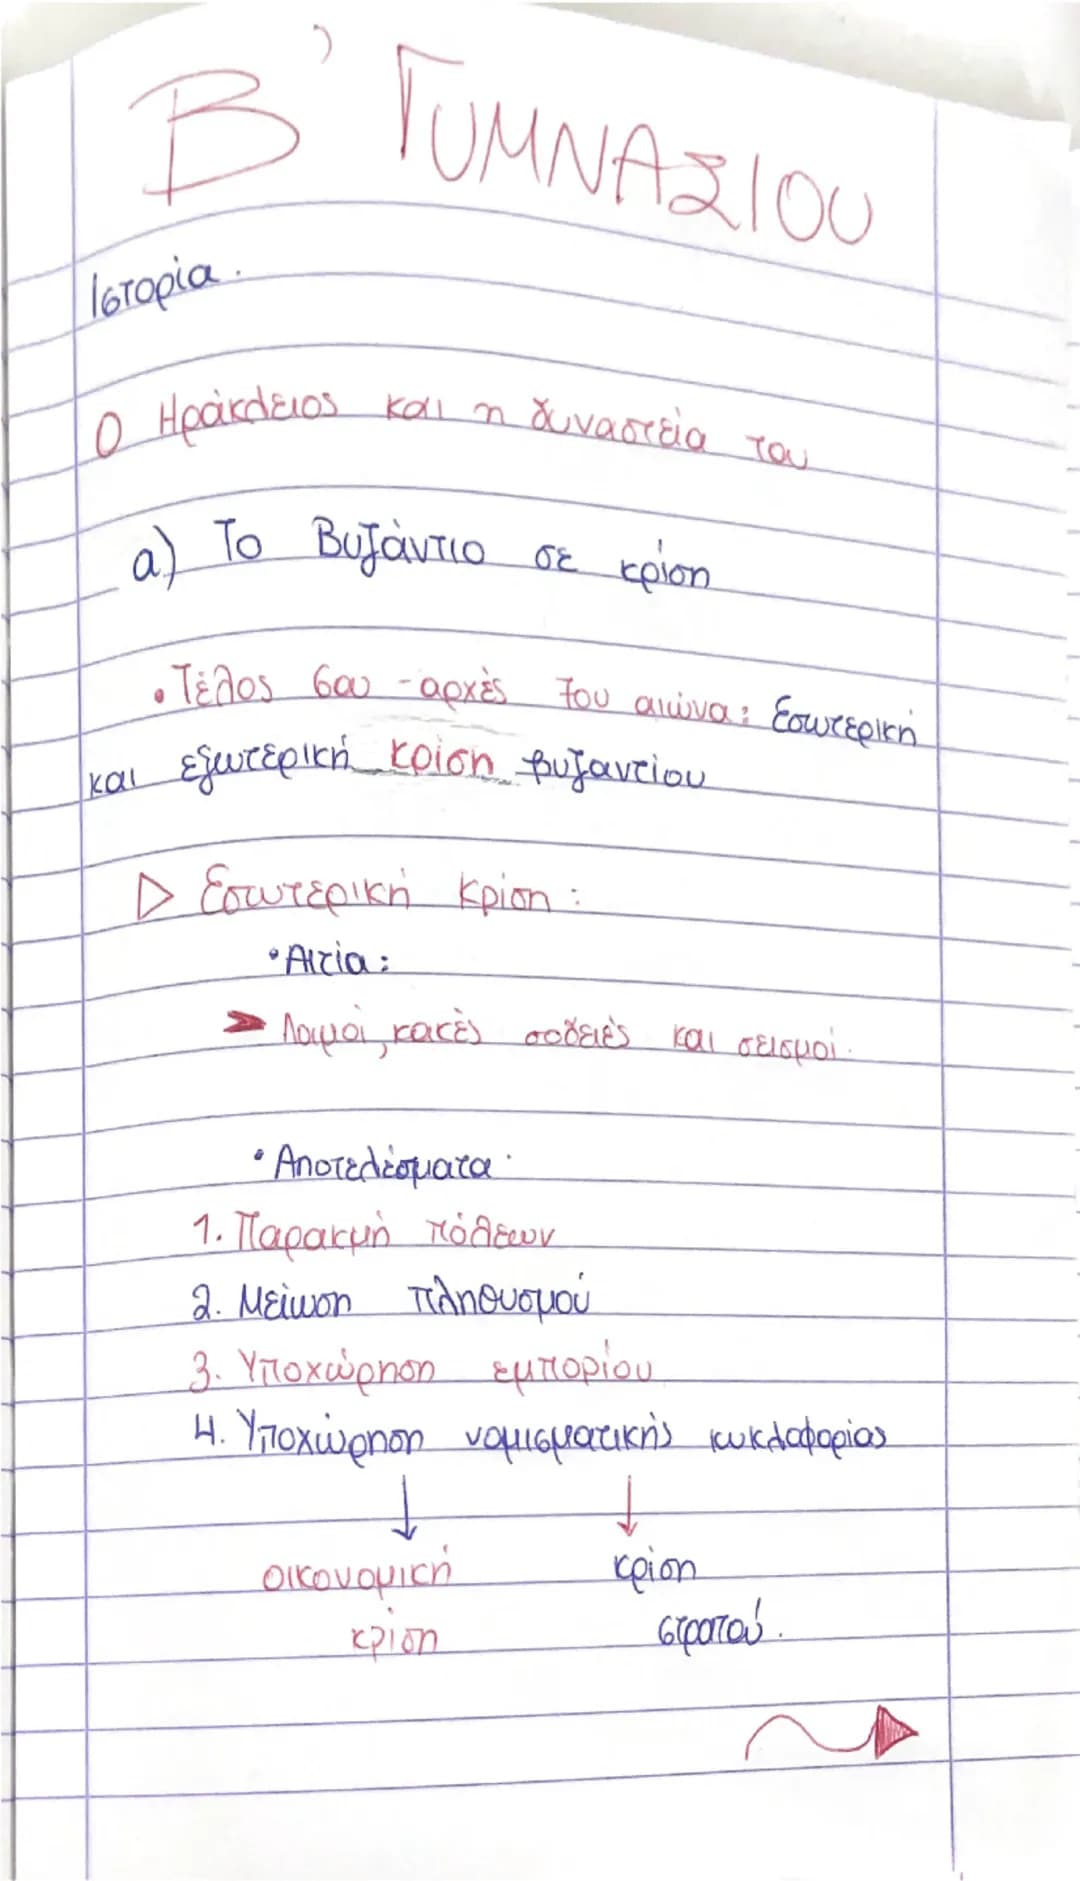 Β' ΓΥΜΝΑΣΙΟΥ
Ιστορία.
Ο Ηράκλειος και η δυναστεία του
α) Το Βυζάντιο σε κρίση
• Τέλος 6ου - αρχές 7ου αιώνα: Εσωτερική
και εξωτερική κρίση βυζαντίου
▷ Εσωτερική κρίση:
• Αιτία:
➤ Λοιμοί, κακές σοδειές και σεισμοί.
• Αποτελέσματα·
1. Παρακμή πόλεων
2. Μείωση πληθυσμού
3. Υποχώρηση εμπορίου
4. Υποχώρηση νομισματικής κυκλοφορίας
↓ ↓
οικονομική κρίση
κρίση στρατού.